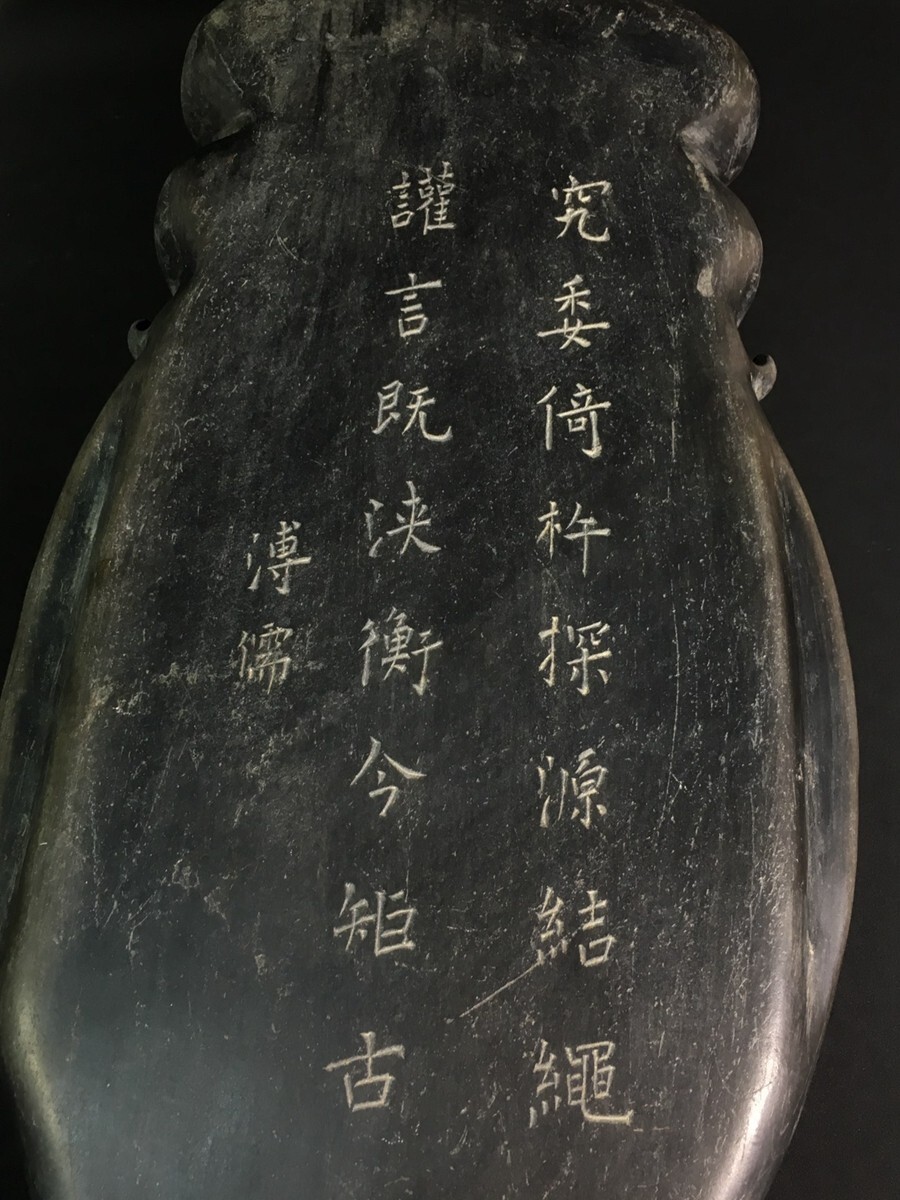 究委倚杵探源結繩
讙言既浹衡今矩古
溥儒